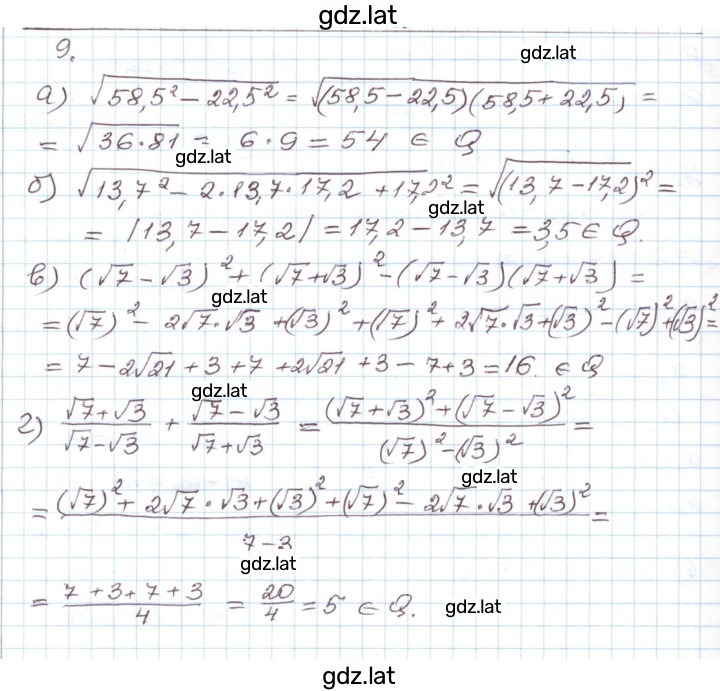 gdz.lat
9.
gdz.lat
а) √(58,5² − 22,5²) = √((58,5 − 22,5)(58,5 + 22,5)) =
= √(36·81) = 6·9 = 54 ∈ Q
gdz.lat
б) √(13,7² − 2·13,7·17,2 + 17,2²) = √((13,7 − 17,2)²) =
gdz.lat
= |13,7 − 17,2| = 17,2 − 13,7 = 3,5 ∈ Q.
в) (√7 − √3)² + (√7 + √3)² − (√7 − √3)(√7 + √3) =
gdz.lat
= (√7)² − 2√7·√3 + (√3)² + (√7)² + 2√7·√3 + (√3)² − (√7)² + (√3)² =
= 7 − 2√21 + 3 + 7 + 2√21 + 3 − 7 + 3 = 16. ∈ Q
gdz.lat
г) (√7 + √3)/(√7 − √3) + (√7 − √3)/(√7 + √3) = ((√7 + √3)² + (√7 − √3)²)/((√7)² − (√3)²) =
gdz.lat
= ((√7)² + 2√7·√3 + (√3)² + (√7)² − 2√7·√3 + (√3)²)/(7 − 3) =
gdz.lat
= (7 + 3 + 7 + 3)/4 = 20/4 = 5 ∈ Q.
gdz.lat
gdz.lat